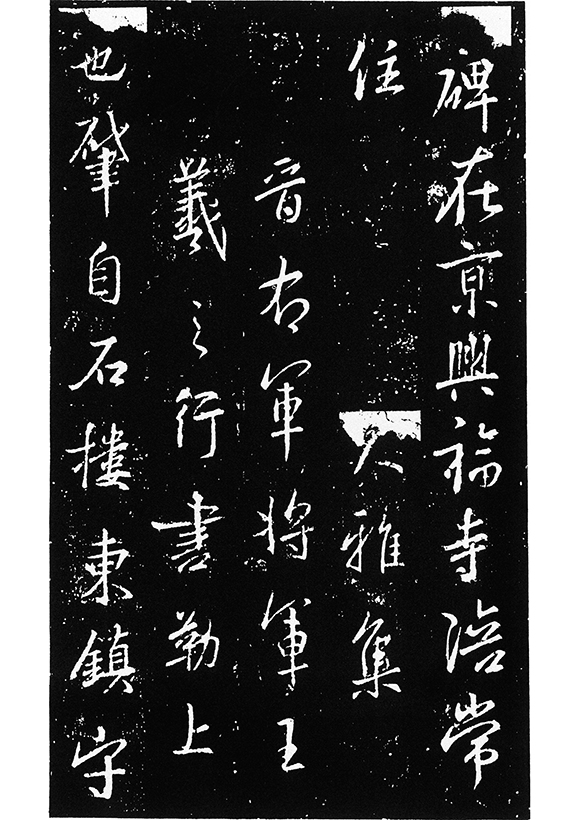 碑在京興福寺陪常
住
大雅集
晉右軍將軍王
羲之行書勒上
也肇自石樓東鎮守